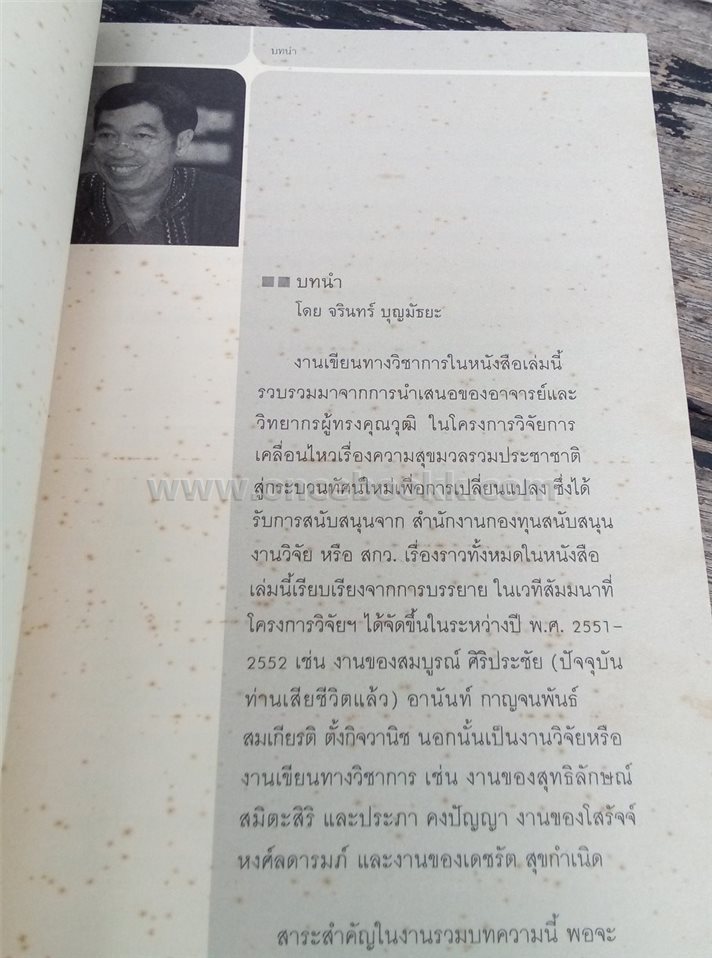 บทนำ
บทนำ
โดย จรินทร์ บุญมัธยะ
งานเขียนทางวิชาการในหนังสือเล่มนี้
รวบรวมมาจากการนำเสนอของอาจารย์และ
วิทยากรผู้ทรงคุณวุฒิ ในโครงการวิจัยการ
เคลื่อนไหวเรื่องความสุขมวลรวมประชาชาติ
สู่กระบวนทัศน์ใหม่เพื่อการเปลี่ยนแปลง ซึ่งได้
รับการสนับสนุนจาก สำนักงานกองทุนสนับสนุน
งานวิจัย หรือ สกว. เรื่องราวทั้งหมดในหนังสือ
เล่มนี้เรียบเรียงจากการบรรยาย ในเวทีสัมมนาที่
โครงการวิจัยฯ ได้จัดขึ้นในระหว่างปี พ.ศ. 2551-
2552 เช่น งานของสมบูรณ์ ศิริประชัย (ปัจจุบัน
ท่านเสียชีวิตแล้ว) อานันท์ กาญจนพันธ์
สมเกียรติ ตั้งกิจวานิช นอกนั้นเป็นงานวิจัยหรือ
งานเขียนทางวิชาการ เช่น งานของสุทธิลักษณ์
สมิตะสิริ และประภา คงปัญญา งานของโสรัจจ์
หงศ์ลดารมภ์ และงานของเดชรัต สุขกำเนิด
สาระสำคัญในงานรวมบทความนี้ พอจะ